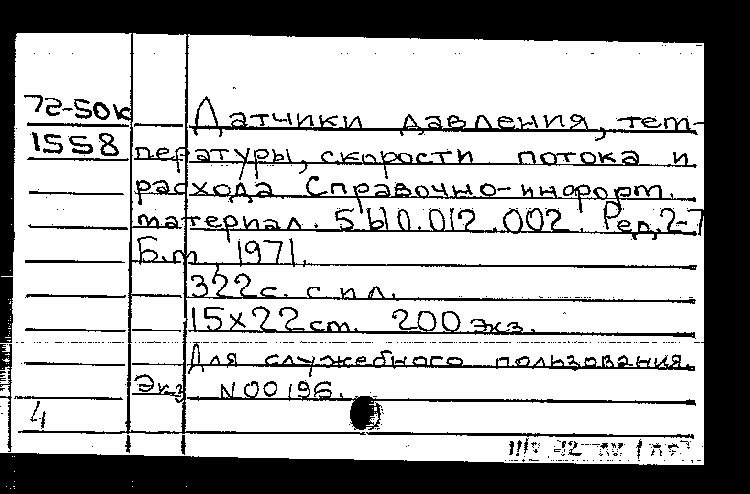 72-50к Датчики давления, тем-
1558 пературы, скорости потока и
расхода. Справочно-информ.
материал. 5Ы0.012.002. Ред.2-7
Б.m, 1971.
322с. с ил.
15х22см. 200 экз.
Для служебного пользования.
Экз N00196.
4